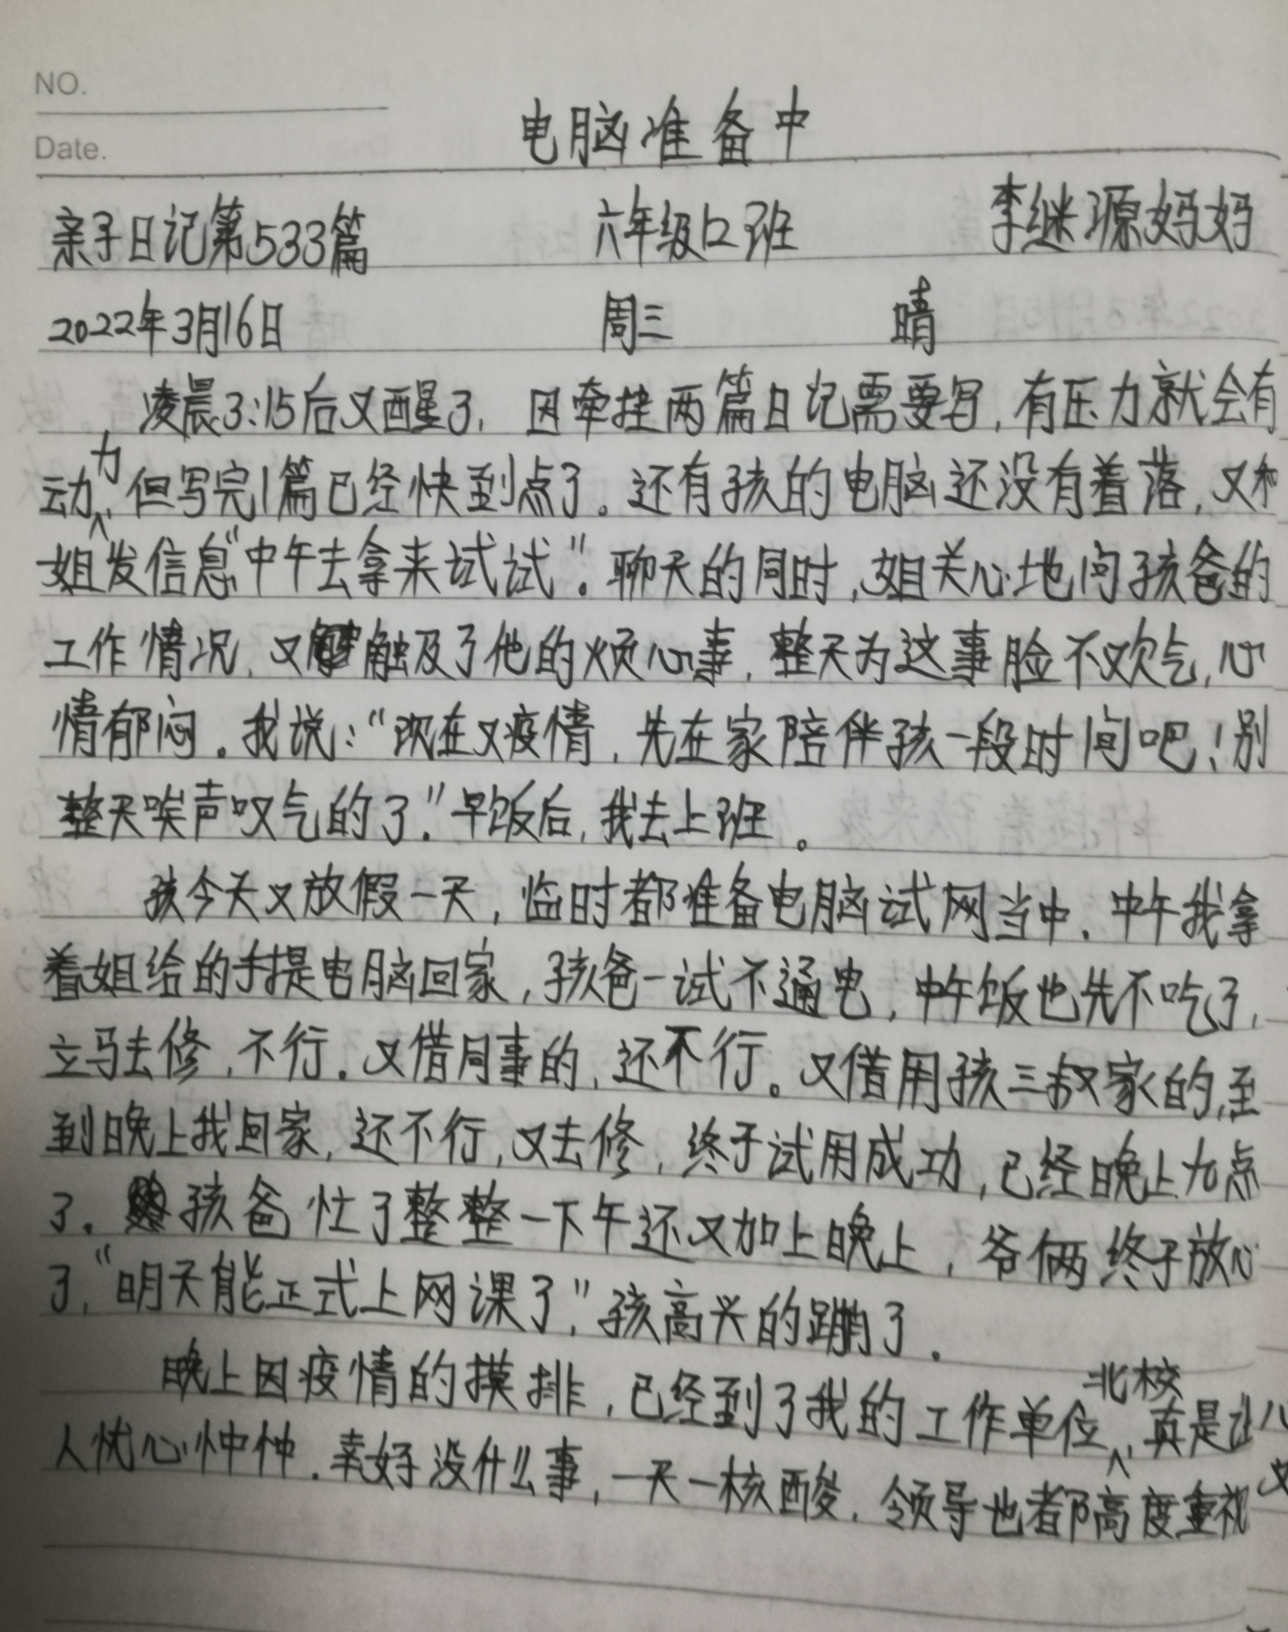 NO.
电脑准备中
Date.
亲子日记第533篇 六年级12班 李继源妈妈
2022年3月16日 周三 晴
凌晨3:15后又醒了，因牵挂两篇日记需要写，有压力就会有
动力，但写完1篇已经快到点了。还有孩的电脑还没有着落，又和
姐发信息“中午去拿来试试”。聊天的同时，姐关心地问孩爸的
工作情况，又触及了他的烦心事，整天为这事脸不欢气，心
情郁闷。我说：“现在又疫情，先在家陪伴孩一段时间吧！别
整天唉声叹气的了。”早饭后，我去上班。
孩今天又放假一天，临时都准备电脑试网当中．中午我拿
着姐给的手提电脑回家，孩爸一试不通电，中午饭也先不吃了，
立马去修，不行。又借同事的，还不行。又借用孩三叔家的，至
到晚上我回家，还不行，又去修，终于试用成功，已经晚上九点
了．孩爸忙了整整一下午还又加上晚上，爷俩终于放心
了，“明天能正式上网课了，”孩高兴的蹦了．
晚上因疫情的摸排，已经到了我的工作单位北校，真是让
人忧心忡忡．幸好没什么事，一天一核酸．领导也都高度重视